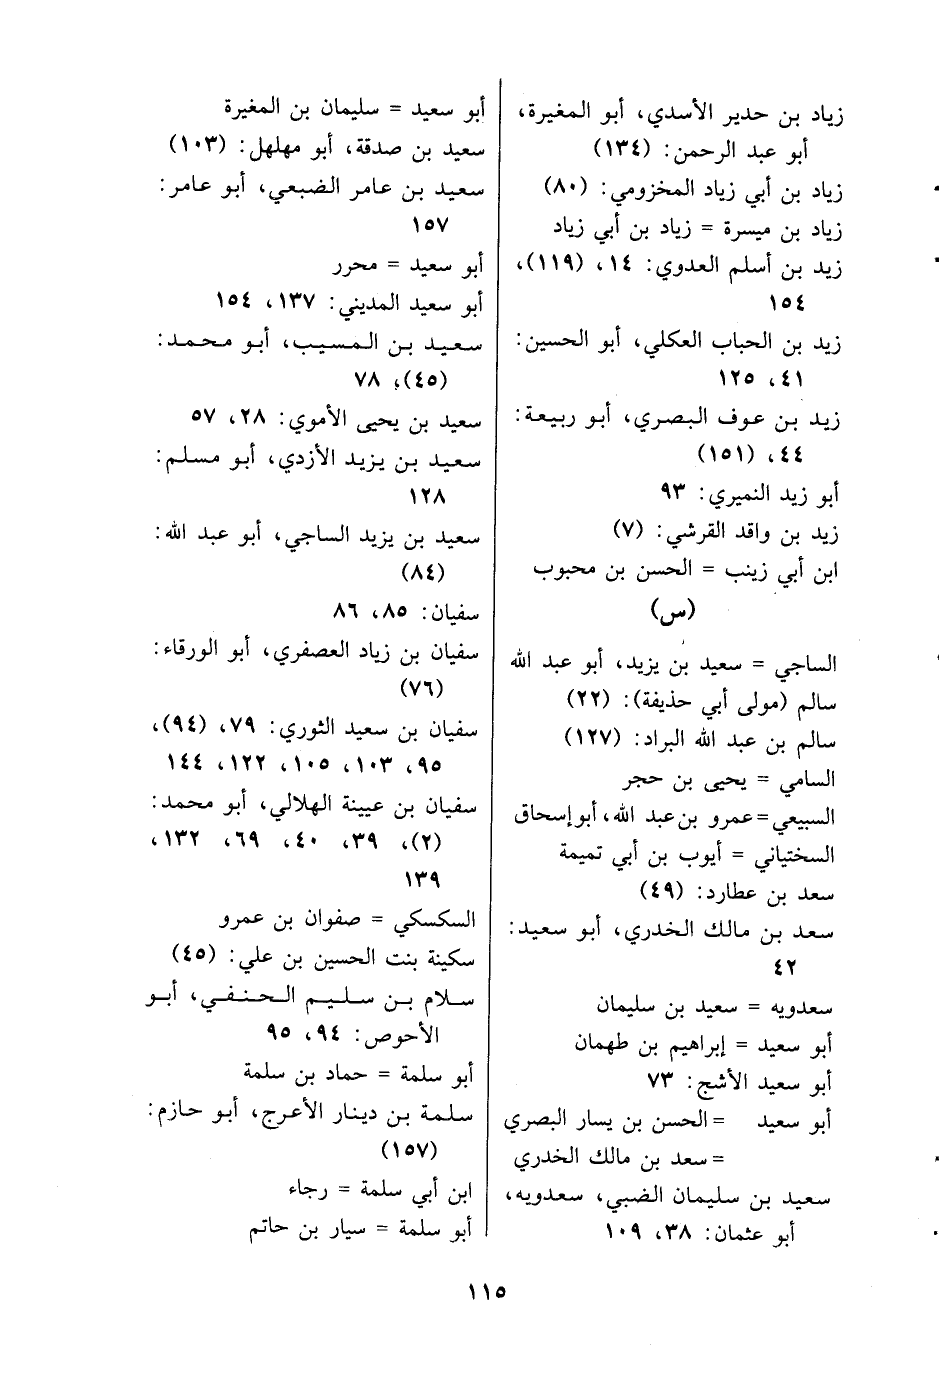 زياد بن حدير الأسدي، أبو المغيرة،
أبو عبد الرحمن: (١٣٤)
زياد بن أبي زياد المخزومي: (٨٠)
زياد بن ميسرة = زياد بن أبي زياد
زيد بن أسلم العدوي: ١٤، (١١٩)،
١٥٤
زيد بن الحباب العكلي، أبو الحسين:
٤١، ١٢٥
زيد بن عوف البصري، أبو ربيعة:
٤٤، (١٥١)
أبو زيد النميري: ٩٣
زيد بن واقد القرشي: (٧)
ابن أبي زينب = الحسن بن محبوب
(س)
الساجي = سعيد بن يزيد، أبو عبد الله
سالم (مولى أبي حذيفة): (٢٢)
سالم بن عبد الله البراد: (١٢٧)
السامي = يحيى بن حجر
السبيعي = عمرو بن عبد الله، أبو إسحاق
السختياني = أيوب بن أبي تميمة
سعد بن عطارد: (٤٩)
سعد بن مالك الخدري، أبو سعيد:
٤٢
سعدويه = سعيد بن سليمان
أبو سعيد = إبراهيم بن طهمان
أبو سعيد الأشج: ٧٣
أبو سعيد = الحسن بن يسار البصري
= سعد بن مالك الخدري
سعيد بن سليمان الضبي، سعدويه،
أبو عثمان: ٣٨، ١٠٩
أبو سعيد = سليمان بن المغيرة
سعيد بن صدقة، أبو مهلهل: (١٠٣)
سعيد بن عامر الضبعي، أبو عامر:
١٥٧
أبو سعيد = محرر
أبو سعيد المديني: ١٣٧، ١٥٤
سعيد بن المسيب، أبو محمد:
(٤٥)، ٧٨
سعيد بن يحيى الأموي: ٢٨، ٥٧
سعيد بن يزيد الأزدي، أبو مسلم:
١٢٨
سعيد بن يزيد الساجي، أبو عبد الله:
(٨٤)
سفيان: ٨٥، ٨٦
سفيان بن زياد العصفري، أبو الورقاء:
(٧٦)
سفيان بن سعيد الثوري: ٧٩، (٩٤)،
٩٥، ١٠٣، ١٠٥، ١٢٢، ١٤٤
سفيان بن عيينة الهلالي، أبو محمد:
(٢)، ٣٩، ٤٠، ٦٩، ١٣٢،
١٣٩
السكسكي = صفوان بن عمرو
سكينة بنت الحسين بن علي: (٤٥)
سلام بن سليم الحنفي، أبو
الأحوص: ٩٤، ٩٥
أبو سلمة = حماد بن سلمة
سلمة بن دينار الأعرج، أبو حازم:
(١٥٧)
ابن أبي سلمة = رجاء
أبو سلمة = سيار بن حاتم
١١٥